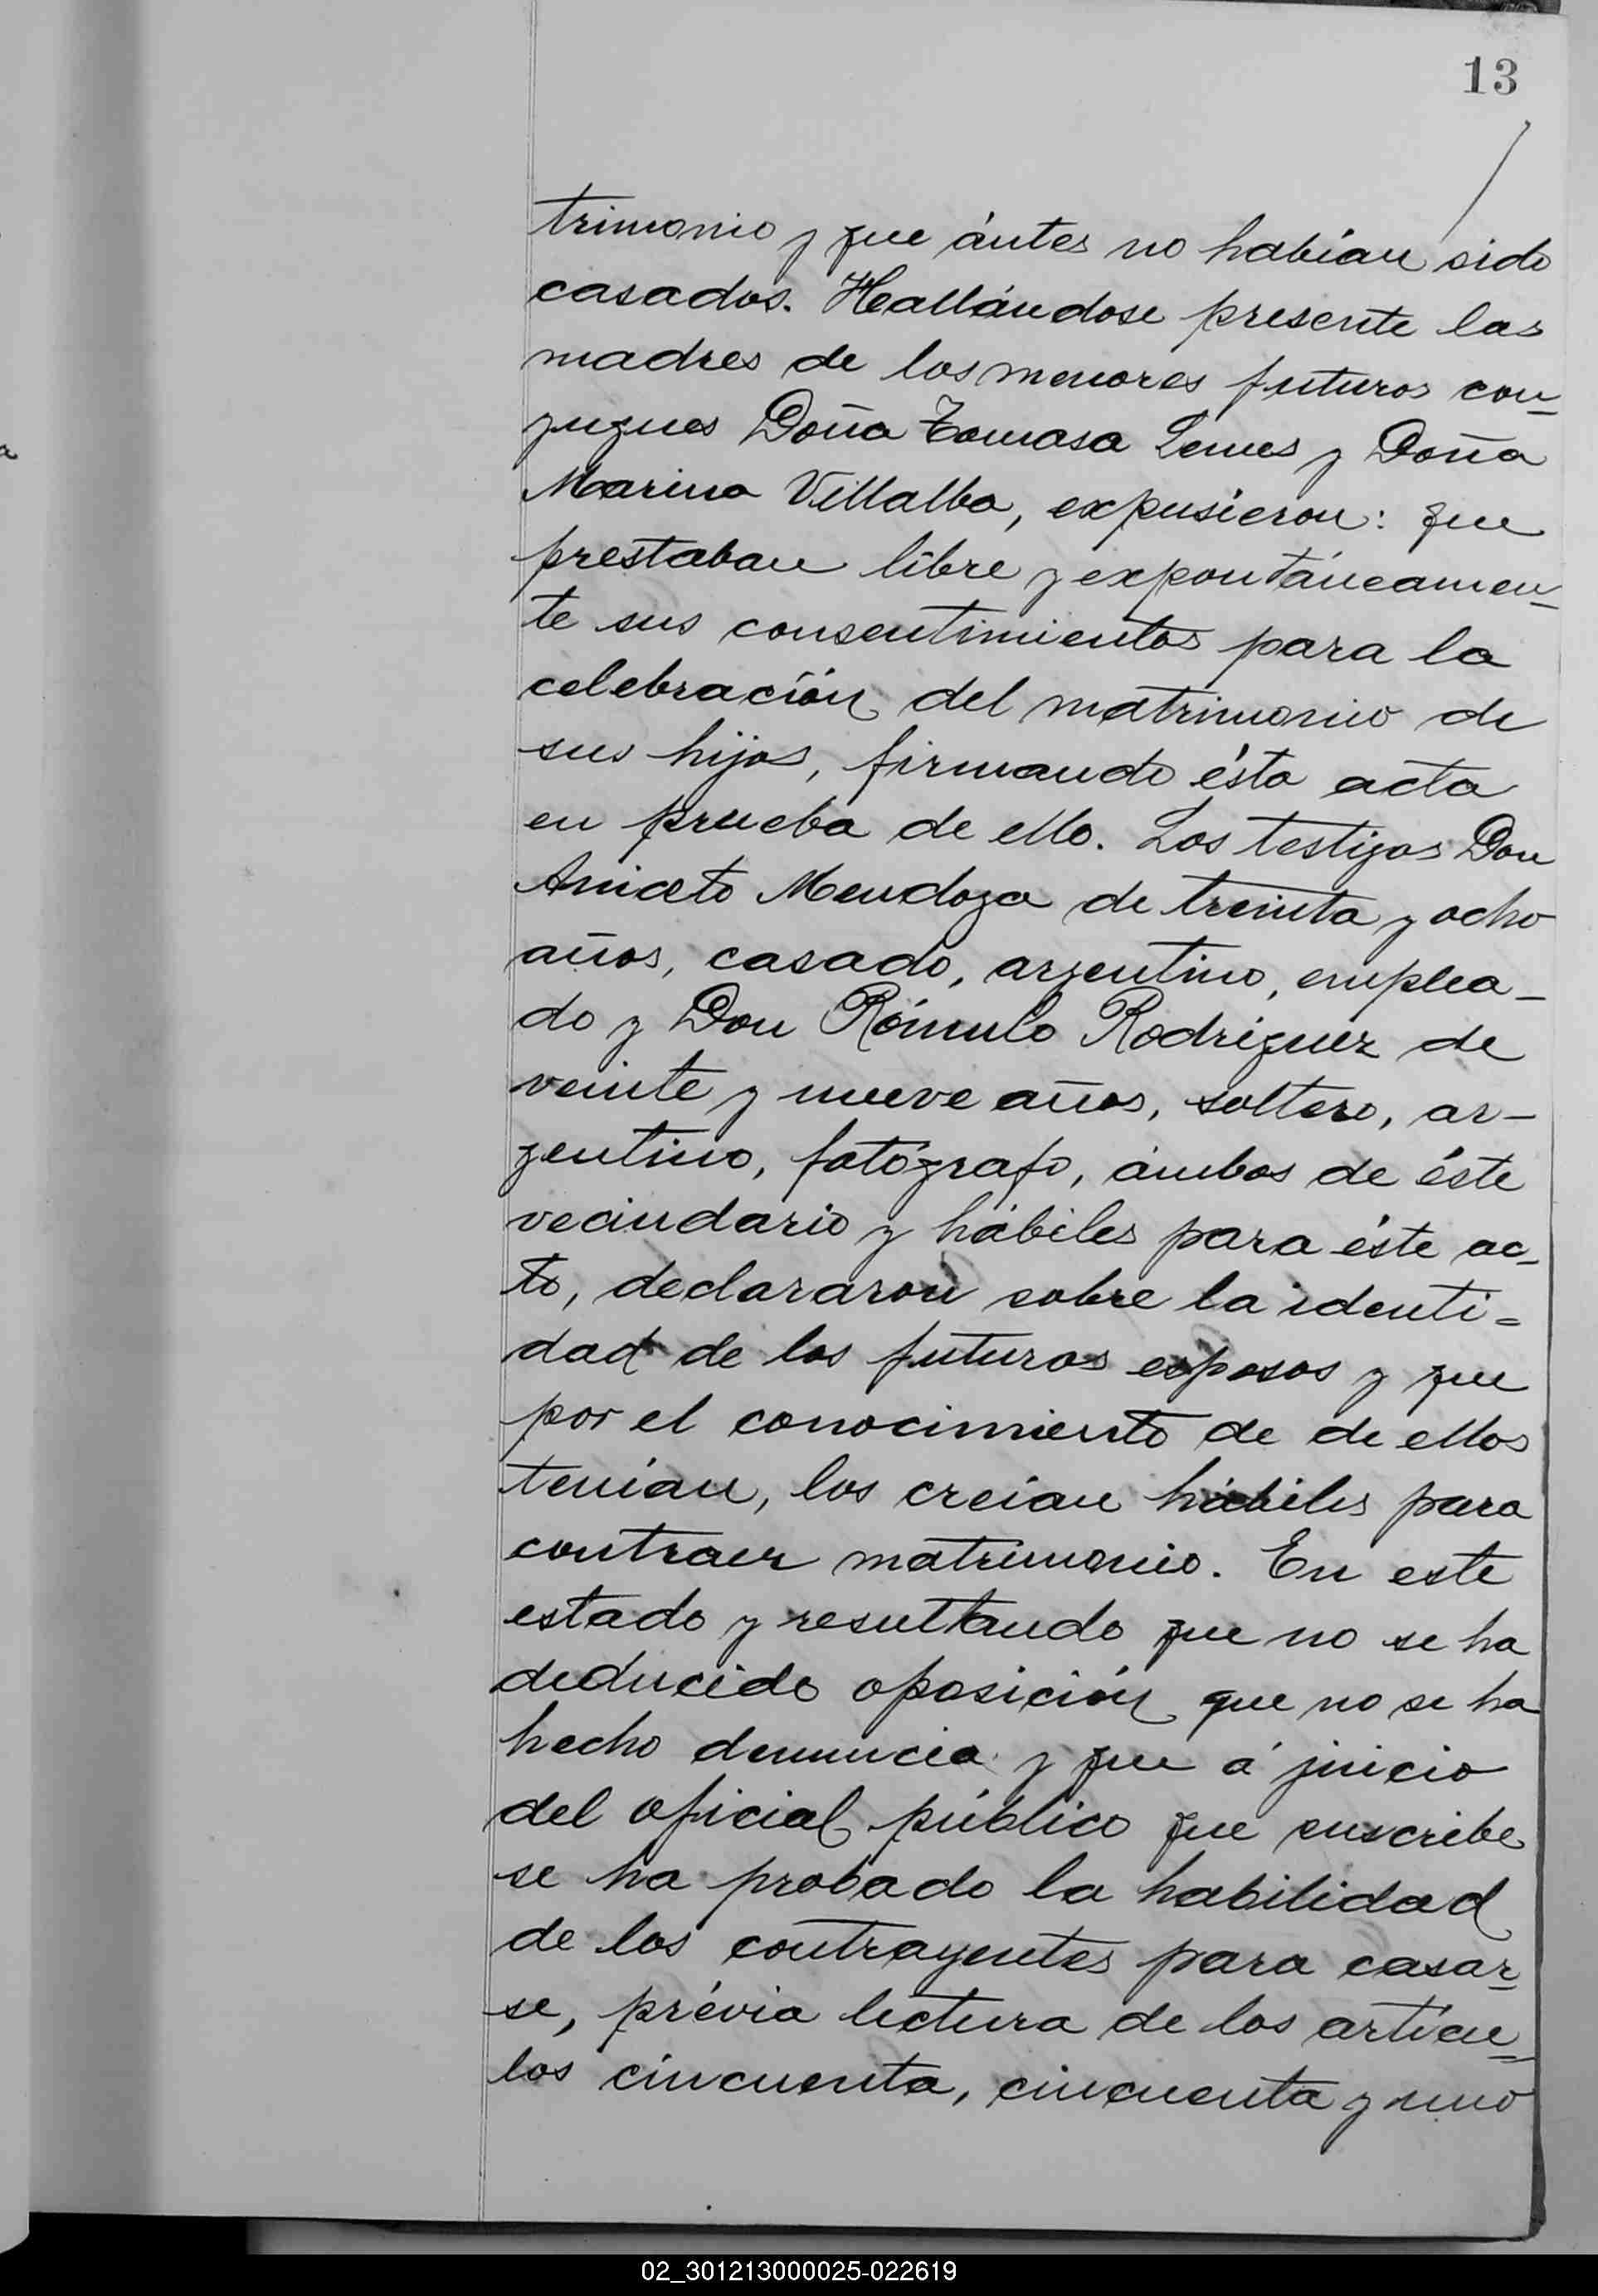 13
trimonio y que ántes no habían sido
casados. Hallándose presente las
madres de los menores futuros con-
yugues Doña Tomasa Lemes y Doña
Marina Villalba, expusieron: que
prestaban libre y expontáneamen-
te sus consentimientos para la
celebración del matrimonio de
sus hijos, firmando ésta acta
en prueba de ello. Los testigos Don
Aniceto Mendoza de treinta y ocho
años, casado, argentino, emplea-
do y Don Rómulo Rodriguez de
veinte y nueve años, soltero, ar-
gentino, fotógrafo, ámbos de éste
vecindario y hábiles para éste ac-
to, declararon sobre la identi-
dad de los futuros esposos y que
por el conocimiento de de ellos
tenían, los creían hábiles para
contraer matrimonio. En este
estado y resultando que no se ha
deducido oposición que no se ha
hecho denuncia y que á juicio
del oficial público que suscribe
se ha probado la habilidad
de los contrayentes para casar-
se, prévia lectura de los artícu-
los cincuenta, cincuenta y uno
02_301213000025-022619